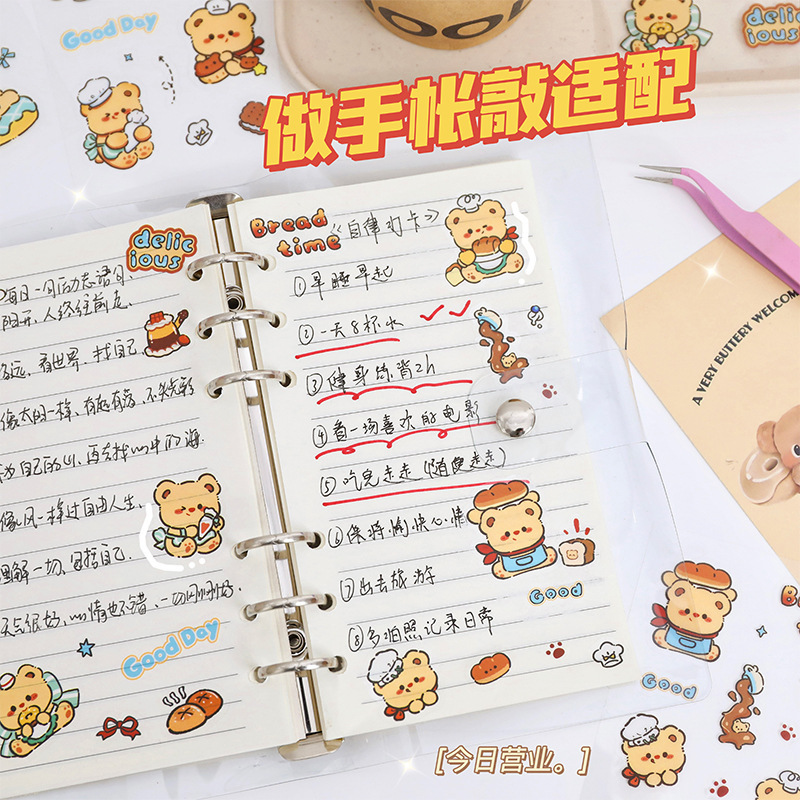 Good Day
delic
ious
做手帐敲适配
delic
ious
每日一句励志语句
看世界、找自己
不失光彩
像风一样过自由人生、
理解一切、包括自己
天气很好、心情也不错、一切刚刚好.
Good Day
Bread
time
《自律打卡》
①早睡早起
②一天8杯水
③健身练背2h
④看一场喜欢的电影
⑤吃完走走(随便走走)
⑥保持愉快心情
⑦出去旅游
⑧多拍照记录日常
Good
A VERY BUTTERY WELCOM
Good
[今日营业。]